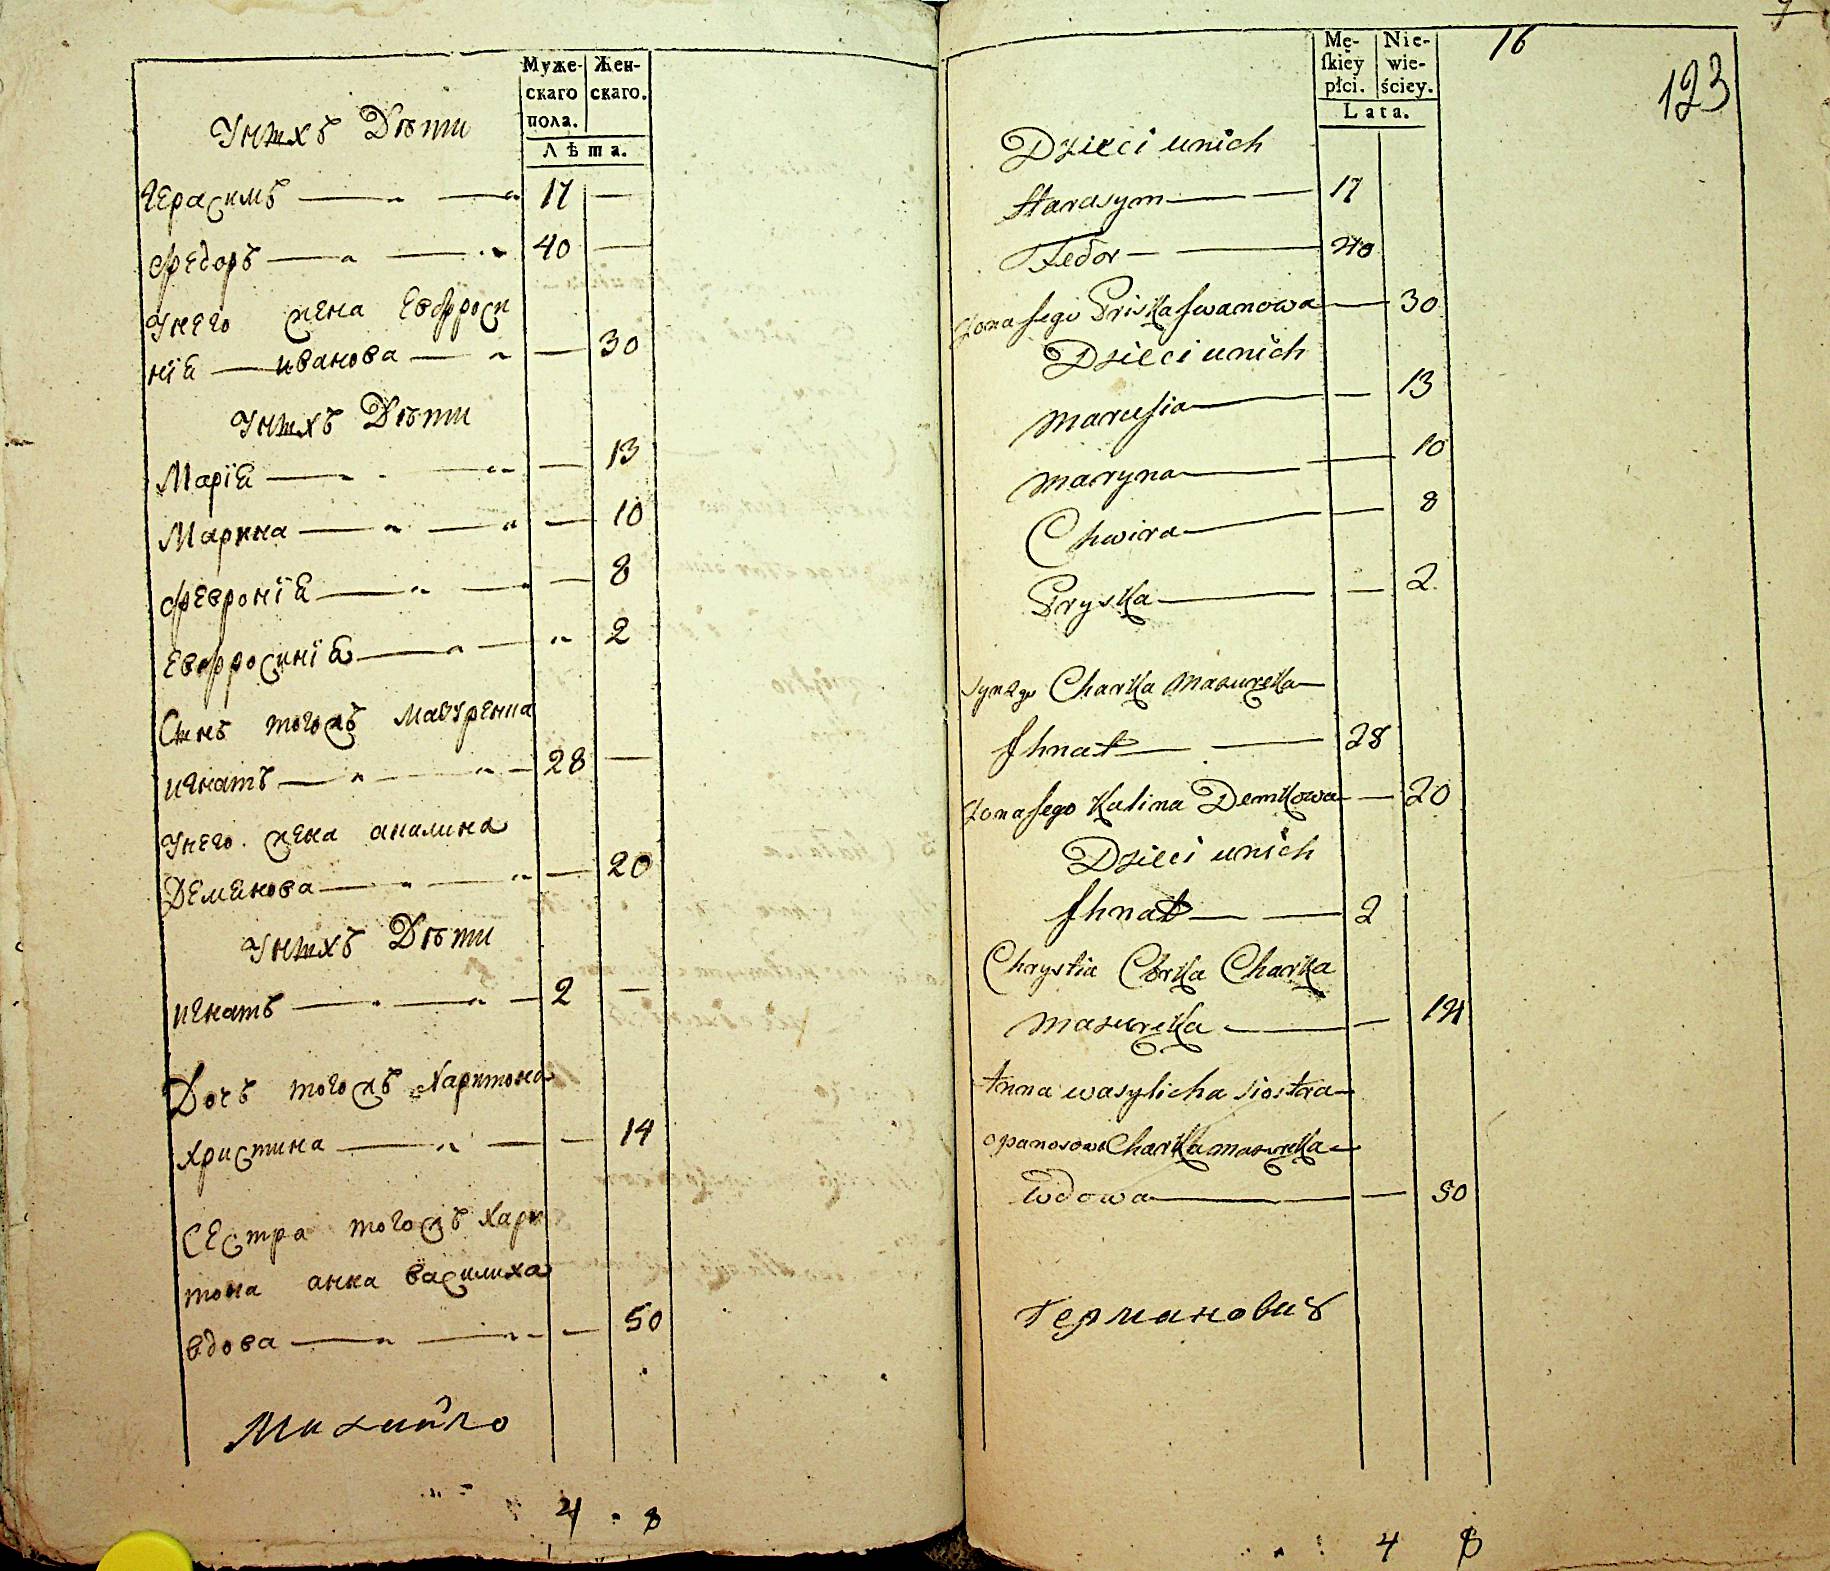 Муже-
скаго
пола.
Жен-
скаго.
Лѣта.
Унихъ Дѣти
Герасимъ 17 —
Федоръ 40 —
Унего жена Евфроси
нїя иванова — 30
Унихъ Дѣти
Марїя — 13
Марина — 10
Февронїя — 8
Евфросинїя 2
Сынъ тогожъ
игнатъ 28 —
Унего жена акилина
Демянова — 20
Унихъ Дѣти
игнатъ 2 —
Дочъ тогожъ Харитона
христина — 14
Сестра тогожъ Хари
тона анна василиха
вдова — 50
Михайло
4 8
Mę-
ſkiey
płci.
Nie-
wie-
ściey.
Lata.
16
123
Dzieci unich
Harasym 17
Fedor 40
Zona Jego Priska Iwanowa 30
Dzieci unich
Marusia — 13
Maryna — 10
Chwira — 8
Pryska — 2
Syn Charka Mazureka
Ihnat 28
Zona Jego Kulina Demkowa — 20
Dzieci unich
Ihnat 2
Chrystia Córka Charka
Mazureka — 14
Anna wasylicha siostra
Charka Mazureka
wdowa — 50
Германович
4 8